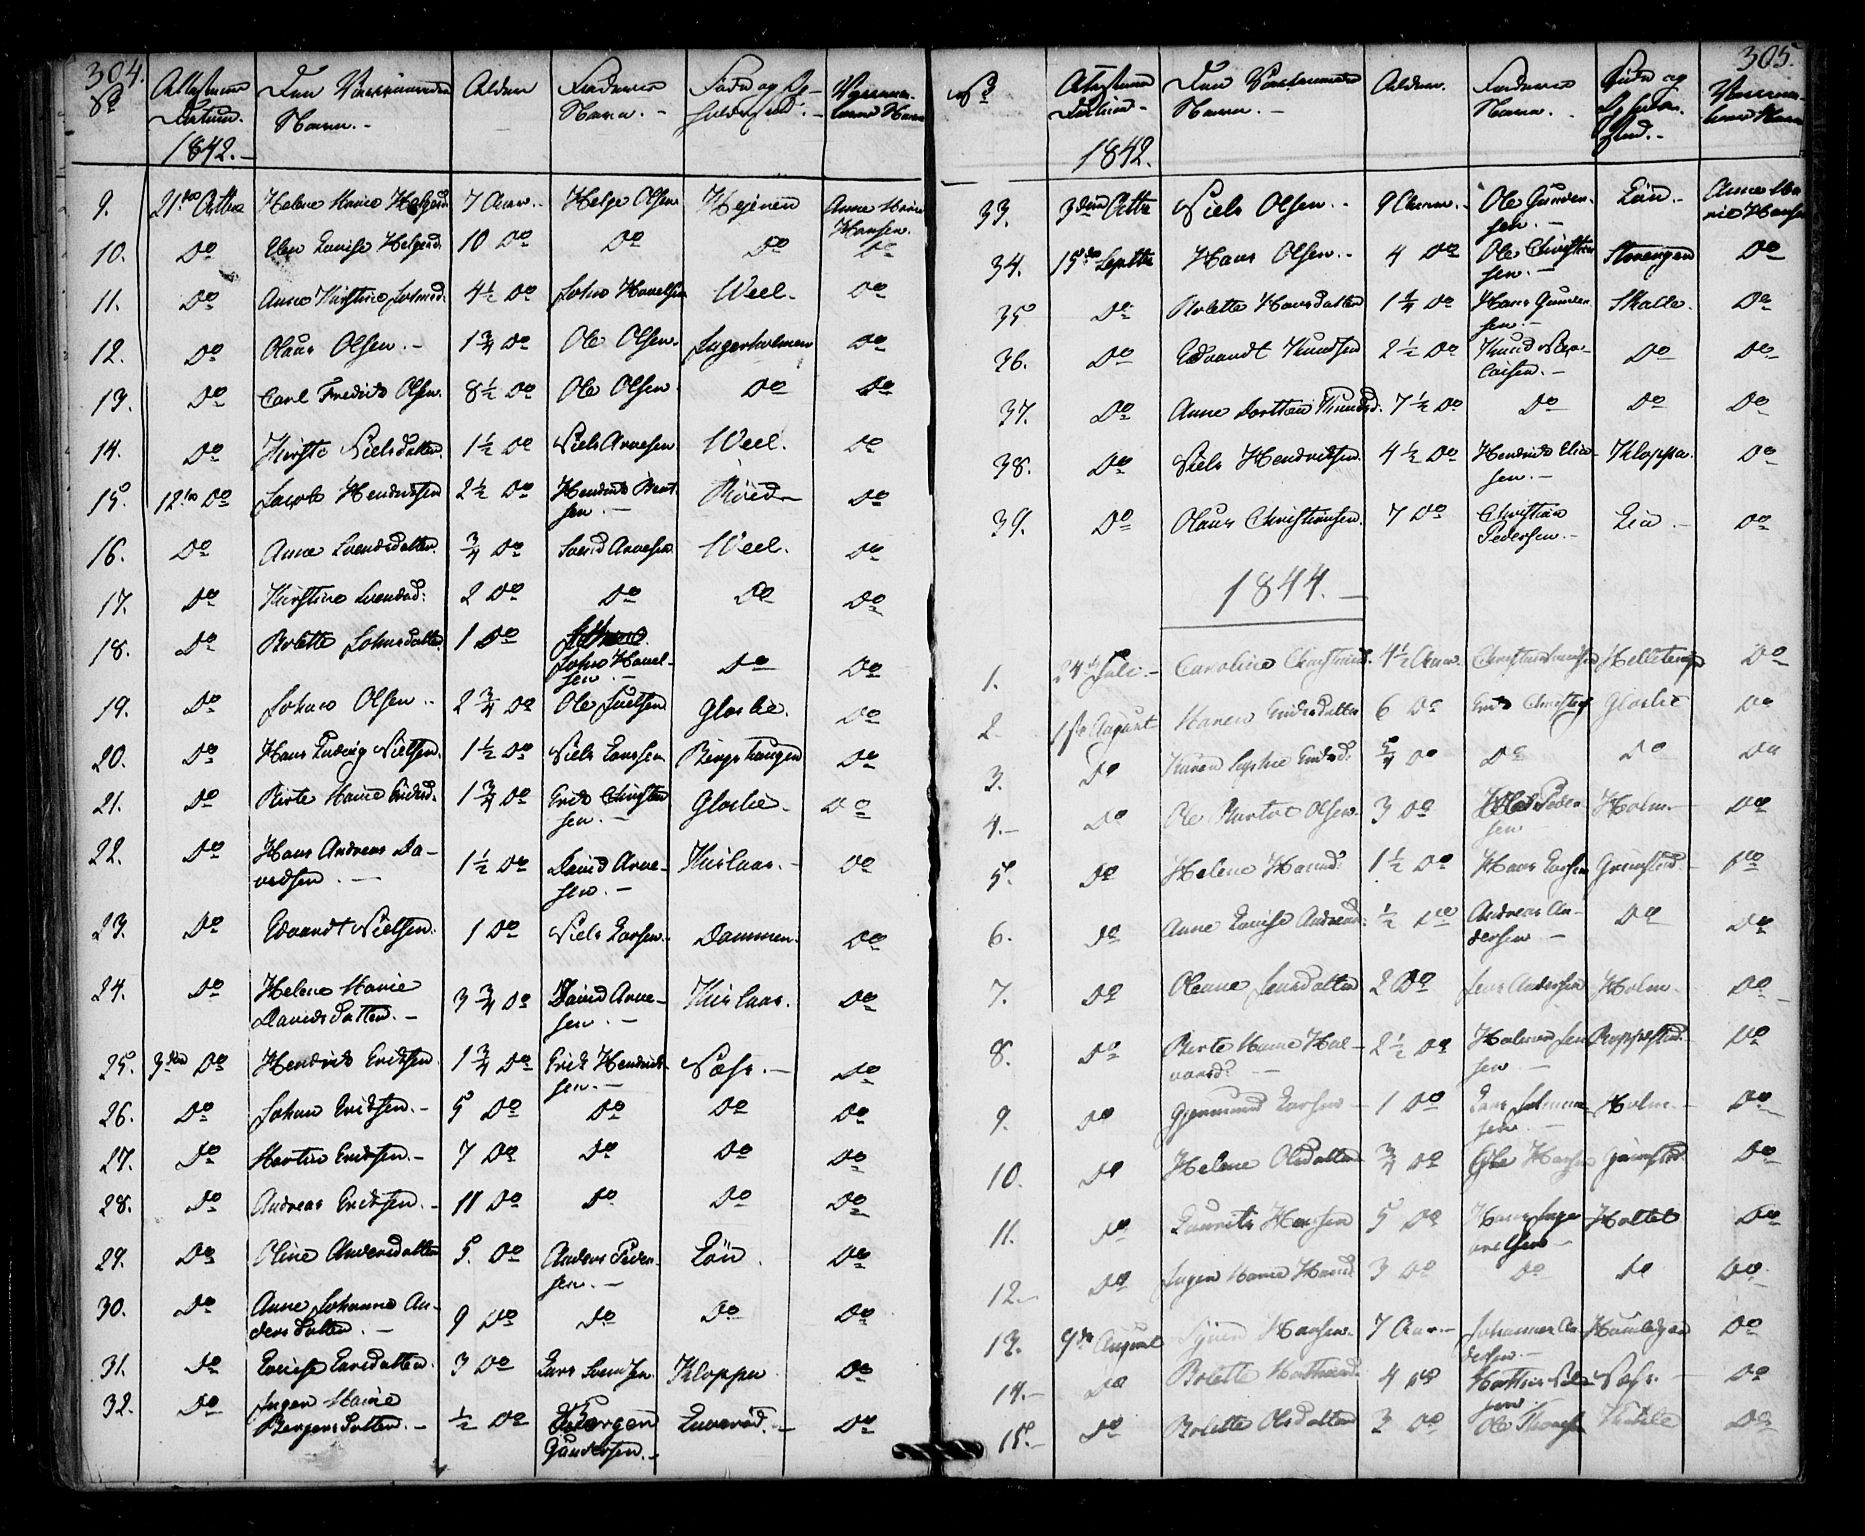 304.
No Attestens Datum. Den Vaccineredes Navn. Alder Faderens Navn. Fødo og Opholdssted. Vaccina-
1842.
9. 21de Octbr Helene Marie Helgesd 7 Aar. Helge Olsen Anne Marie Hansen.
10. Do Elen Lovise Helgesd 10 Do Do Do Do
11. Do Anne Kirstine Johnsd. 4½ Do John Havelsen Weel. Do
12. Do Olaus Olsen. 1¾ Do Ole Olsen. Ingerholmen Do
13. Do Carl Fredrik Olsen. 8½ Do Ole Olsen Do Do
14. Do Kirste Nielsdatter. 1½ Do Niels Arvesen Weel. Do
15. 12te Do Jacob Hendriksen 2½ Do Hendrik Bent-
sen. Röed Do
16. Do Anne Svendsdatter. ¾ Do Svend Arvesen Weel. Do
17. Do Kirstine Svendsd: 2 Do Do Do Do
18. Do Bolette Johnsdatter 1 Do
John Havel-
sen. Do Do
19. Do Johan Olsen. 2¾ Do Ole Juelsen Gloslie. Do
20. Do Hans Ludvig Nielsen. 1½ Do Niels Larssen Bingshougen Do
21. Do Birte Marie Eriksd. 1¾ Do Erik Christen
sen. Gloslie. Do
22. Do Hans Andreas Da-
vidsen. 1½ Do David Arve-
sen. Kislaas. Do
23. Do Edvardt Nielsen. 1 Do Niels Larsen. Dammen. Do
24. Do Helene Marie
Davidsdatter. 3¾ Do David Arve-
sen. Kislaas. Do
25. 3die Do Hendrik Eriksen. 1¾ Do Erik Hendrik-
sen. Næss. Do
26. Do Johan Eriksen. 5 Do Do Do Do
27. Do Martin Eriksen. 7 Do Do Do Do
28. Do Andreas Eriksen. 11 Do Do Do Do
29. Do Oline Andersdatter 5. Do Anders Peder-
sen. Löu. Do
30. Do Anne Johanne An-
dersdatter. 9 Do Do Do Do
31. Do Lovise Larsdatter. 3 Do Lars Svendsen Kloppa Do
32. Do Inger Marie
Bergersdatter. ½ Do Berger
Gundersen. Do
305.
No Attestens Datum Den Vaccineredes Navn. Alder. Faderens Navn. Föde og Opholdssted.
1842.
33. 3die Octbr Niels Olsen. 9 Aar. Ole Gunder-
sen. Löu. Anne Ma-
rie Hansen
34. 15de Septbr Hans Olsen. 4 Do Ole Christian
sen. Stovengen Do
35. Do Bolette Hansdatter 1¼ Do Hans Gunder-
sen. Skalle. Do
36. Do Edvardt Knudsen 2½ Do Knud Nico-
laisen. Do Do
37. Do Anne Dorthea Knudsd. 7½ Do Do Do Do
38. Do Niels Hendriksen. 4½ Do Hendrik Elia-
sen. Kloppa. Do
39. Do Olaus Christiansen. 7 Do Christian
Pedersen. Lia. Do
1844.
1. 24de Juli. Caroline Christiansd. 4½ Aar. Do
2. 1ste August Maren Eriksdatter 6 Do Gloslie Do
3. Do Karen Sophie Eriksd: Do Do Do Do
4. Do Olsen. 3 Do Peder-
sen Holm. Do
5. Do Helene Hansd: 1½ Do Hans Larsen Grimstad. Do
6. Do Anne Lovise Andreasd: ½ Do Andreas An-
dersen Do Do
7. Do Olenne Jensdatter 2 Do Jens Andersen Holm. Do
8. Do Berte Marie Hal-
vorsd: 2½ Do Halvor Jen
sen Do
9. Do Gjermund Larsen 1 Do Lars
sen. Holm. Do
10. Do Helene Olsdatter ¾ Do Ole Hansen Grimstad. Do
11. Do Laurits Hansen 5 Do Hans Inge-
Holtet Do
12. Do Inger Marie Hansd: 3 Do Do Do Do
13. 9de August Hansen. 7 Aar. Johannes An
dersen. Do
14. Do Bolette Mathiasd: 4 Do Mathias
sen Næss. Do
15. Do Bolette Olsdatter 3 Do Do